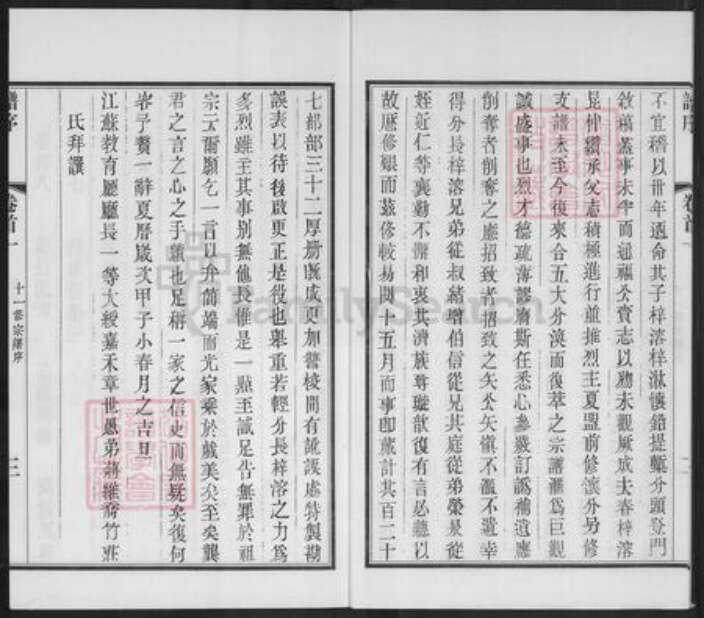 譜序
卷首一
二
不宜稽以卅年遺命其子梓溶梓淋懷鉛提槧分頭登門
敘稿蓋事未半而遁福公賚志以歿未觀厥成去春梓溶
昆仲纘承父志積極進行並推烈主夏盟前修滾分另修
支譜未至今復來合五大分渙而復萃之宗譜羅為巨觀
誠盛事也烈才德疏薄謬膺斯任悉心參嚴訂譌補遺應
削奪者削奪之應招致者招致之矢公矢慎不濫不遺幸
得分長梓溶兄弟從叔緒增伯信從兄其庭從弟榮景從
姪近仁等襄勷不懈和衷共濟族尊璇歆復有言必聽以
故曆修艱而茲修較易閱十五月而事即蕆計共百二十
七部部三十二厚册既成更加讐校間有訛誤處特製勘
誤表以待後啟更正是役也舉重若輕分長梓溶之力為
多烈雖主其事别無他長惟是一點至誠足告無罪於祖
宗云爾願乞一言以弁簡端而光家乘於戲美矣至矣龔
君之言之心之手續也足稱一家之信史而無疑矣復何
容予贅一辭夏曆歲次甲子小春月之吉旦
江蘇教育廳廳長一等大綬嘉禾章世愚弟蔣維喬竹莊
氏拜讚
譜序
卷首一
十一修宗譜序
三
FamilySearch